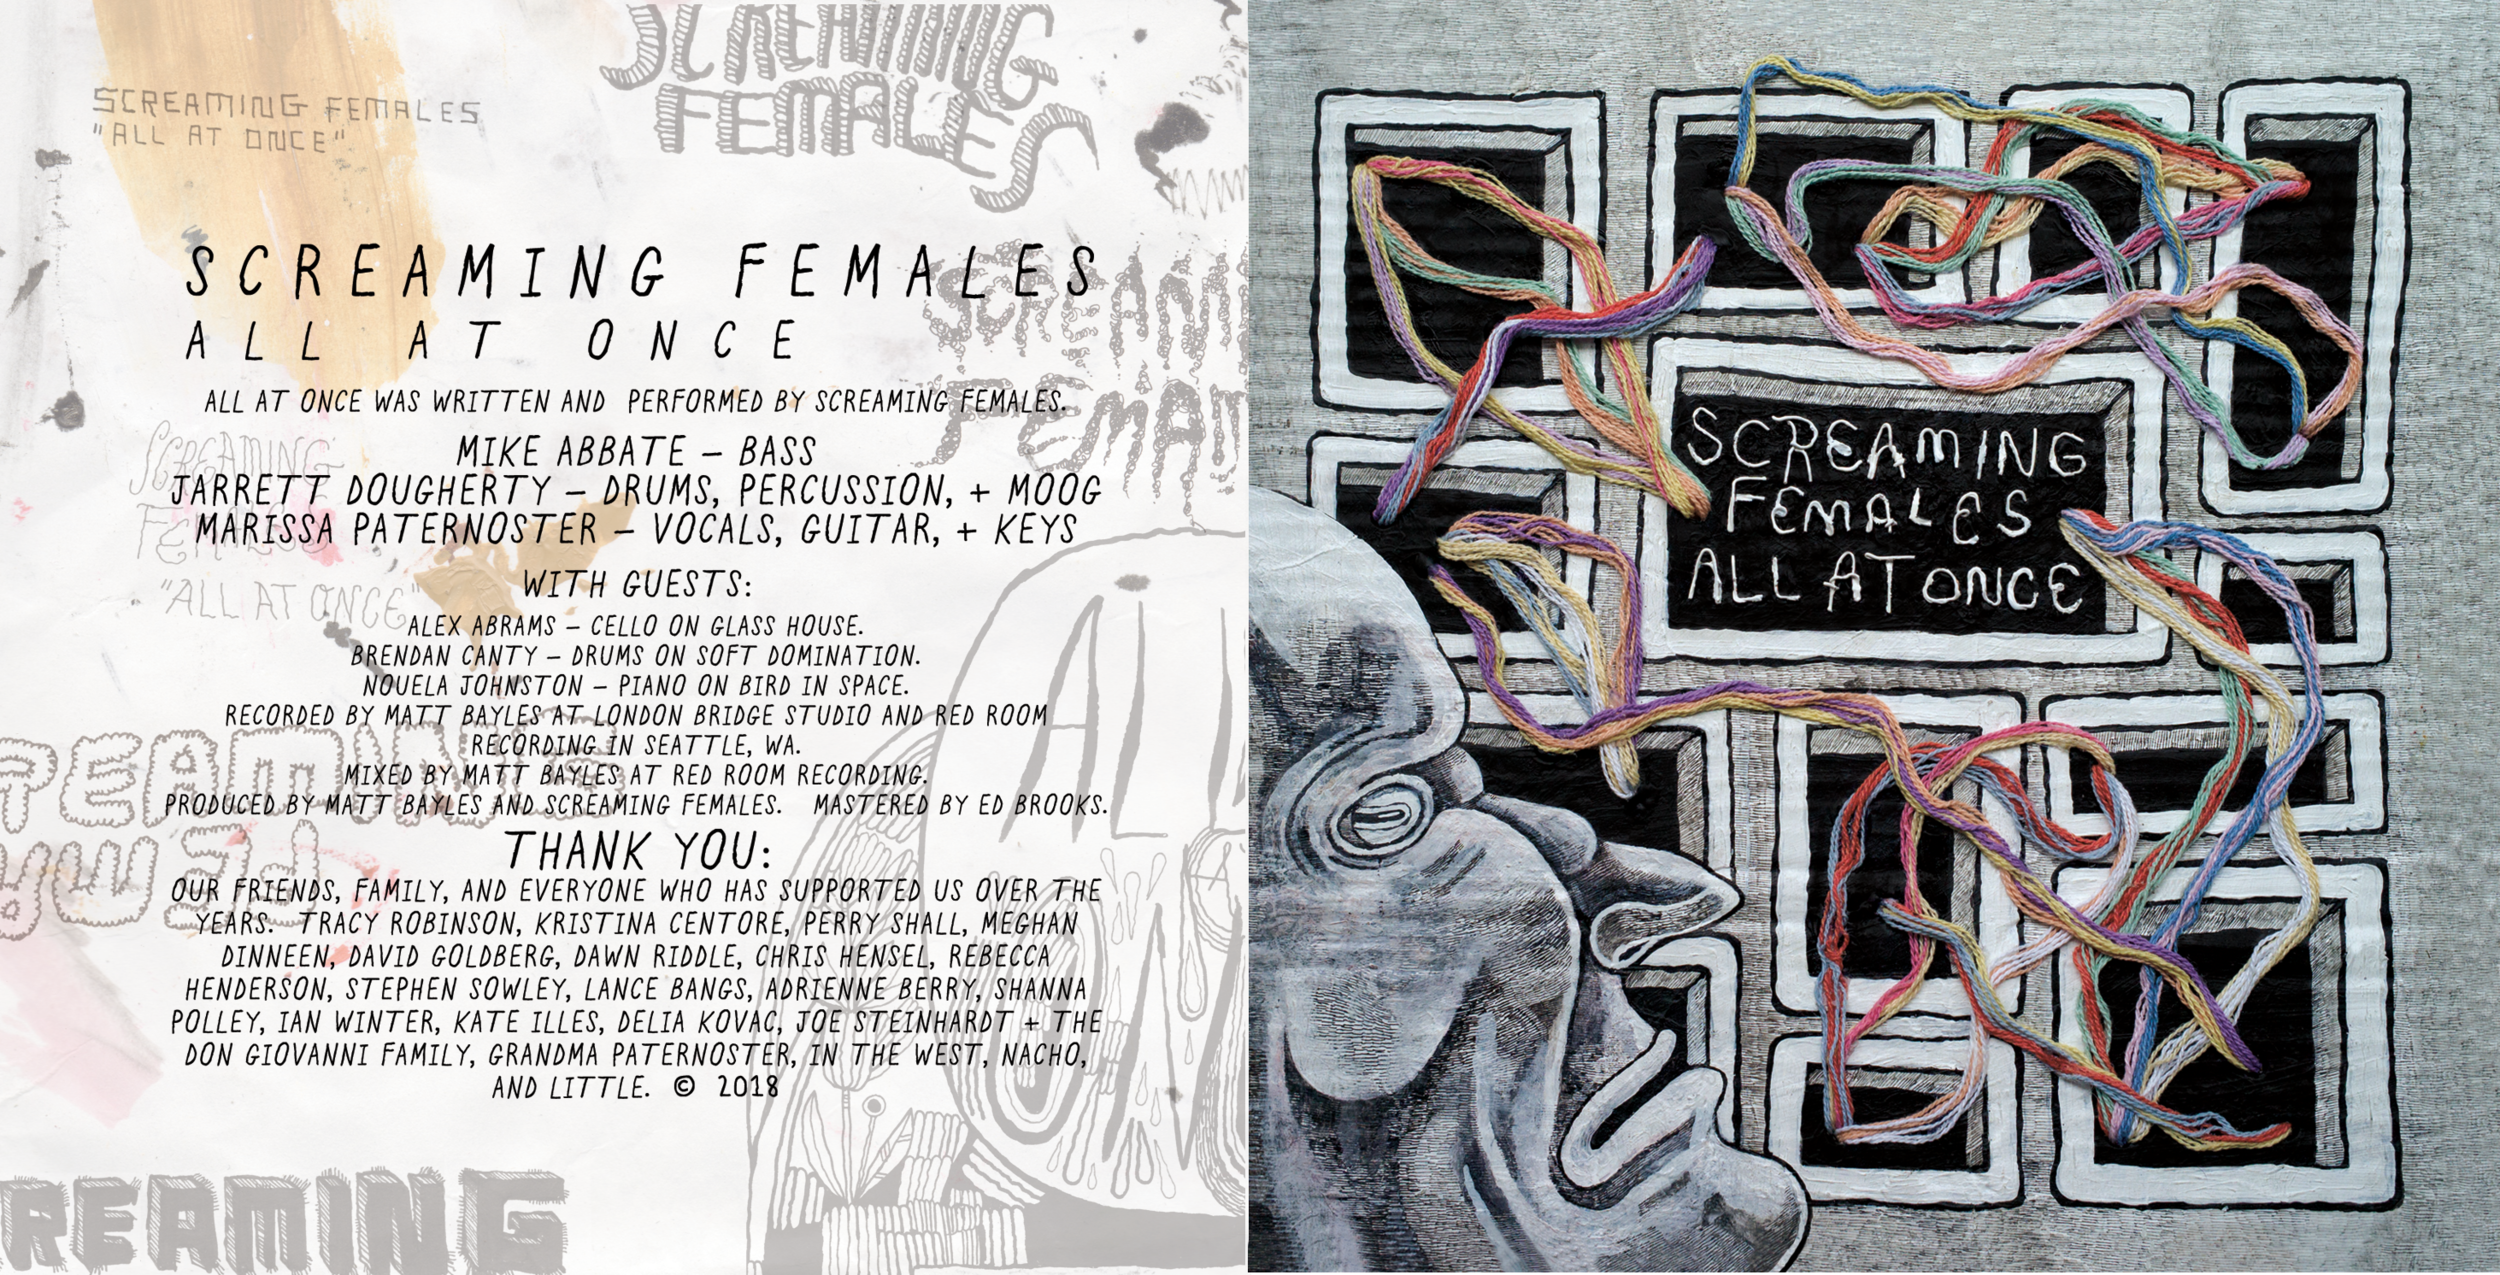 SCREAMING FEMALES
SCREAMING FEMALES
"ALL AT ONCE"
SCREAMING FEMALES
ALL AT ONCE
ALL AT ONCE WAS WRITTEN AND PERFORMED BY SCREAMING FEMALES.
MIKE ABBATE – BASS
JARRETT DOUGHERTY – DRUMS, PERCUSSION, + MOOG
MARISSA PATERNOSTER – VOCALS, GUITAR, + KEYS
WITH GUESTS:
ALEX ABRAMS – CELLO ON GLASS HOUSE.
BRENDAN CANTY – DRUMS ON SOFT DOMINATION.
NOUELA JOHNSTON – PIANO ON BIRD IN SPACE.
RECORDED BY MATT BAYLES AT LONDON BRIDGE STUDIO AND RED ROOM
RECORDING IN SEATTLE, WA.
MIXED BY MATT BAYLES AT RED ROOM RECORDING.
PRODUCED BY MATT BAYLES AND SCREAMING FEMALES. MASTERED BY ED BROOKS.
THANK YOU:
OUR FRIENDS, FAMILY, AND EVERYONE WHO HAS SUPPORTED US OVER THE
YEARS. TRACY ROBINSON, KRISTINA CENTORE, PERRY SHALL, MEGHAN
DINNEEN, DAVID GOLDBERG, DAWN RIDDLE, CHRIS HENSEL, REBECCA
HENDERSON, STEPHEN SOWLEY, LANCE BANGS, ADRIENNE BERRY, SHANNA
POLLEY, IAN WINTER, KATE ILLES, DELIA KOVAC, JOE STEINHARDT + THE
DON GIOVANNI FAMILY, GRANDMA PATERNOSTER, IN THE WEST, NACHO,
AND LITTLE. © 2018
SCREAMIN
FEMAL
SCREAMING
FEMALES
"ALL AT ONCE"
REAMING
FEMA
ALL
REAMING
SCREAMING
FEMALES
ALL AT ONCE